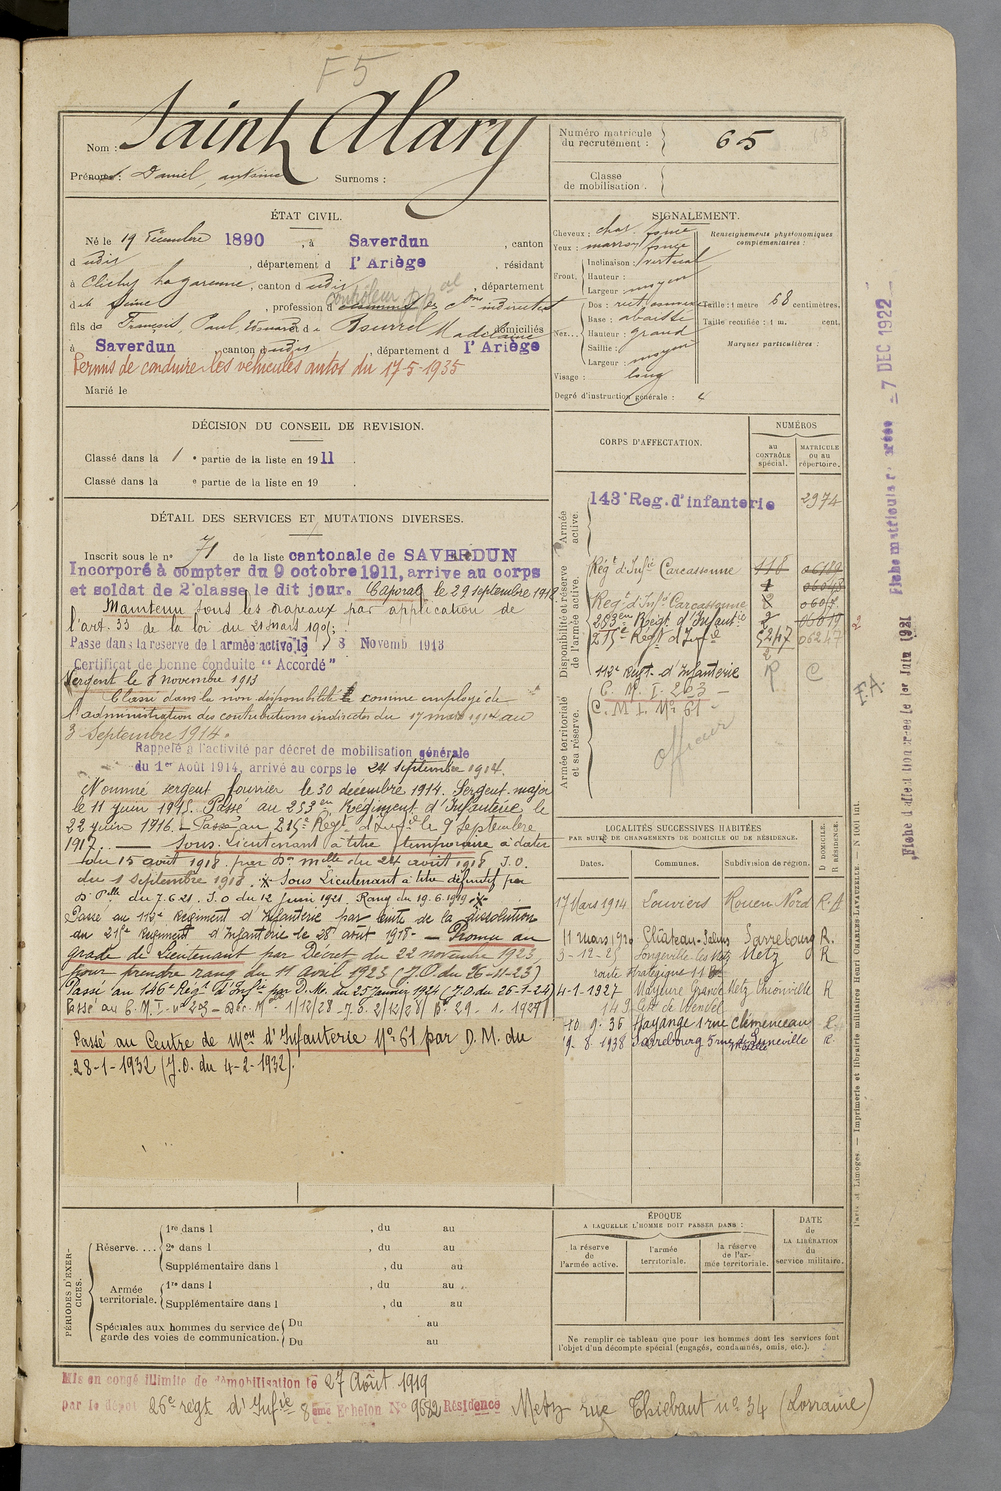 F5
Nom : Saint Alary
Prénoms : Daniel, antoine Surnoms :
Numéro matricule du recrutement : 65
Classe de mobilisation :
ÉTAT CIVIL.
Né le 19 Décembre 1890, à Saverdun, canton
d udis, département d l'Ariège, résidant
à Clichy la garenne, canton d udis, département
d e la Seine, profession d contrôleur ppal des cons indirectes
fils de François, Paul, Edouard et de Rouvrel Madelaine domiciliés
à Saverdun canton d udis, département d l'Ariège
Permis de conduire les véhicules autos du 17-5-1935
Marié le
SIGNALEMENT.
Cheveux : chat. foncé
Yeux : marron foncé
Front, Inclinaison : vertical
Hauteur :
Largeur : moyen
Nez... Dos : rect.
Base : abaissé
Hauteur : grand
Saillie :
Largeur : moyen
Visage : long
Renseignements physionomiques complémentaires :
Taille : 1 mètre 68 centimètres.
Taille rectifiée : 1 m. cent.
Marques particulières :
Degré d'instruction générale : 4
DÉCISION DU CONSEIL DE REVISION.
Classé dans la 1 e partie de la liste en 1911
Classé dans la e partie de la liste en 19
DÉTAIL DES SERVICES ET MUTATIONS DIVERSES.
Inscrit sous le n° 71 de la liste cantonale de SAVERDUN
Incorporé à compter du 9 octobre 1911, arrive au corps
et soldat de 2e classe, le dit jour. Caporal le 29 septembre 1912.
Maintenu sous les drapeaux par application de
l'art. 33 de la loi du 21 mars 1905.
Passé dans la réserve de l'armée active, le 8 Novemb 1913
Certificat de bonne conduite "Accordé"
Sergent le 8 novembre 1913
Classé dans la non disponibilité comme employé de
l'administration des contributions indirectes du 17 mars 1914 au
3 Septembre 1914.
Rappelé à l'activité par décret de mobilisation générale
du 1er Août 1914, arrivé au corps le 24 septembre 1914.
Nommé sergent fourrier le 30 décembre 1914. Sergent-major
le 11 juin 1915. Passé au 253em Régiment d'Infanterie le
22 juin 1916. - Passé au 215e Régt d'Infie le 9 septembre
1917. - Sous Lieutenant à titre temporaire à dater
du 15 août 1918. par Don mlle du 24 août 1918. J.O.
du 1 Septembre 1918. * Sous Lieutenant à titre définitif par
Don mlle du 7.6.21. J.O du 12 juin 1921. Rang du 19.6.1919 *
Passé au 112e Régiment d'Infanterie par suite de la dissolution
du 215e Régiment d'Infanterie le 28 août 1918 - Promu au
grade de Lieutenant par Décret du 22 novembre 1923
pour prendre rang du 11 avril 1923 (J.O. du 26-11-23)
Passé au 146e Régt d'Infie par D.M. du 23 Janvier 1924 (J.O. du 26-1-24)
Passé au C.M.I. n° 203 - Déc. Mlle 1/12/28 - J.O. 2/12/28
Passé au Centre de Mon d'Infanterie N° 61 par D.M. du
28-1-1932 (J.O. du 4-2-1932).
CORPS D'AFFECTATION.
NUMÉROS
AU CONTRÔLE spécial.
MATRICULE ou au répertoire.
Armée active.
143e Reg. d'infanterie 2974
Disponibilité et réserve de l'armée active.
Régt d'Infie Carcassonne
Régt d'Infie Carcassonne
253em Régt d'Infantie
215e Régt d'Infie 5247 06247
112e Régt d'Infanterie R C
C. M. I. 203 -
Armée territoriale et sa réserve.
C. M I. N° 61 -
officier
LOCALITÉS SUCCESSIVES HABITÉES
PAR SUITE DE CHANGEMENTS DE DOMICILE OU DE RÉSIDENCE.
Dates. Communes. Subdivision de région. D DOMICILE. R RÉSIDENCE.
17 Mars 1914 Louviers Rouen Nord R.D
11 mars 1920 Château-Salins Sarrebourg R.
3-12-25 Longeville-les-Metz Metz R
route Stratégique 11
4-1-1927 Mayeuvre Grande Metz Thionville R
143 Cité de Wendel
10 9. 35 Hayange 1 rue Clémenceau R
19. 8. 1938 Sarrebourg 5 rue de Lunéville R
Moselle
PÉRIODES D'EXERCICES.
Réserve.... 1re dans l , du au
2e dans l , du au
Supplémentaire dans l , du au
Armée territoriale. 1re dans l , du au
Supplémentaire dans l , du au
Spéciales aux hommes du service de garde des voies de communication. Du au
Du au
ÉPOQUE
A LAQUELLE L'HOMME DOIT PASSER DANS :
la réserve de l'armée active.
l'armée territoriale.
la réserve de l'armée territoriale.
DATE de LA LIBÉRATION du service militaire.
Ne remplir ce tableau que pour les hommes dont les services font
l'objet d'un décompte spécial (engagés, condamnés, omis, etc.).
Mis en congé illimité de démobilisation le 27 Août 1919
par le dépôt 26e regt d'Infie 8eme Echelon N° 9682 Résidence Metz rue Thiebaut n° 34 (Lorraine)
Paris et Limoges. — Imprimerie et librairie militaires Henri CHARLES-LAVAUZELLE. — N° 1001 int.
Fiche matriculaire créée - 7 DEC 1922
Fiche d'affectation créée le 1er Juin 1921
F.A.